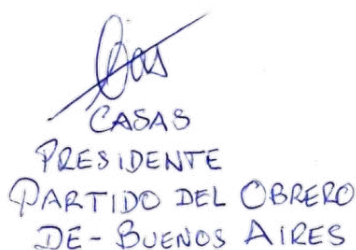 CASAS
PRESIDENTE
PARTIDO DEL OBRERO
DE - BUENOS AIRES